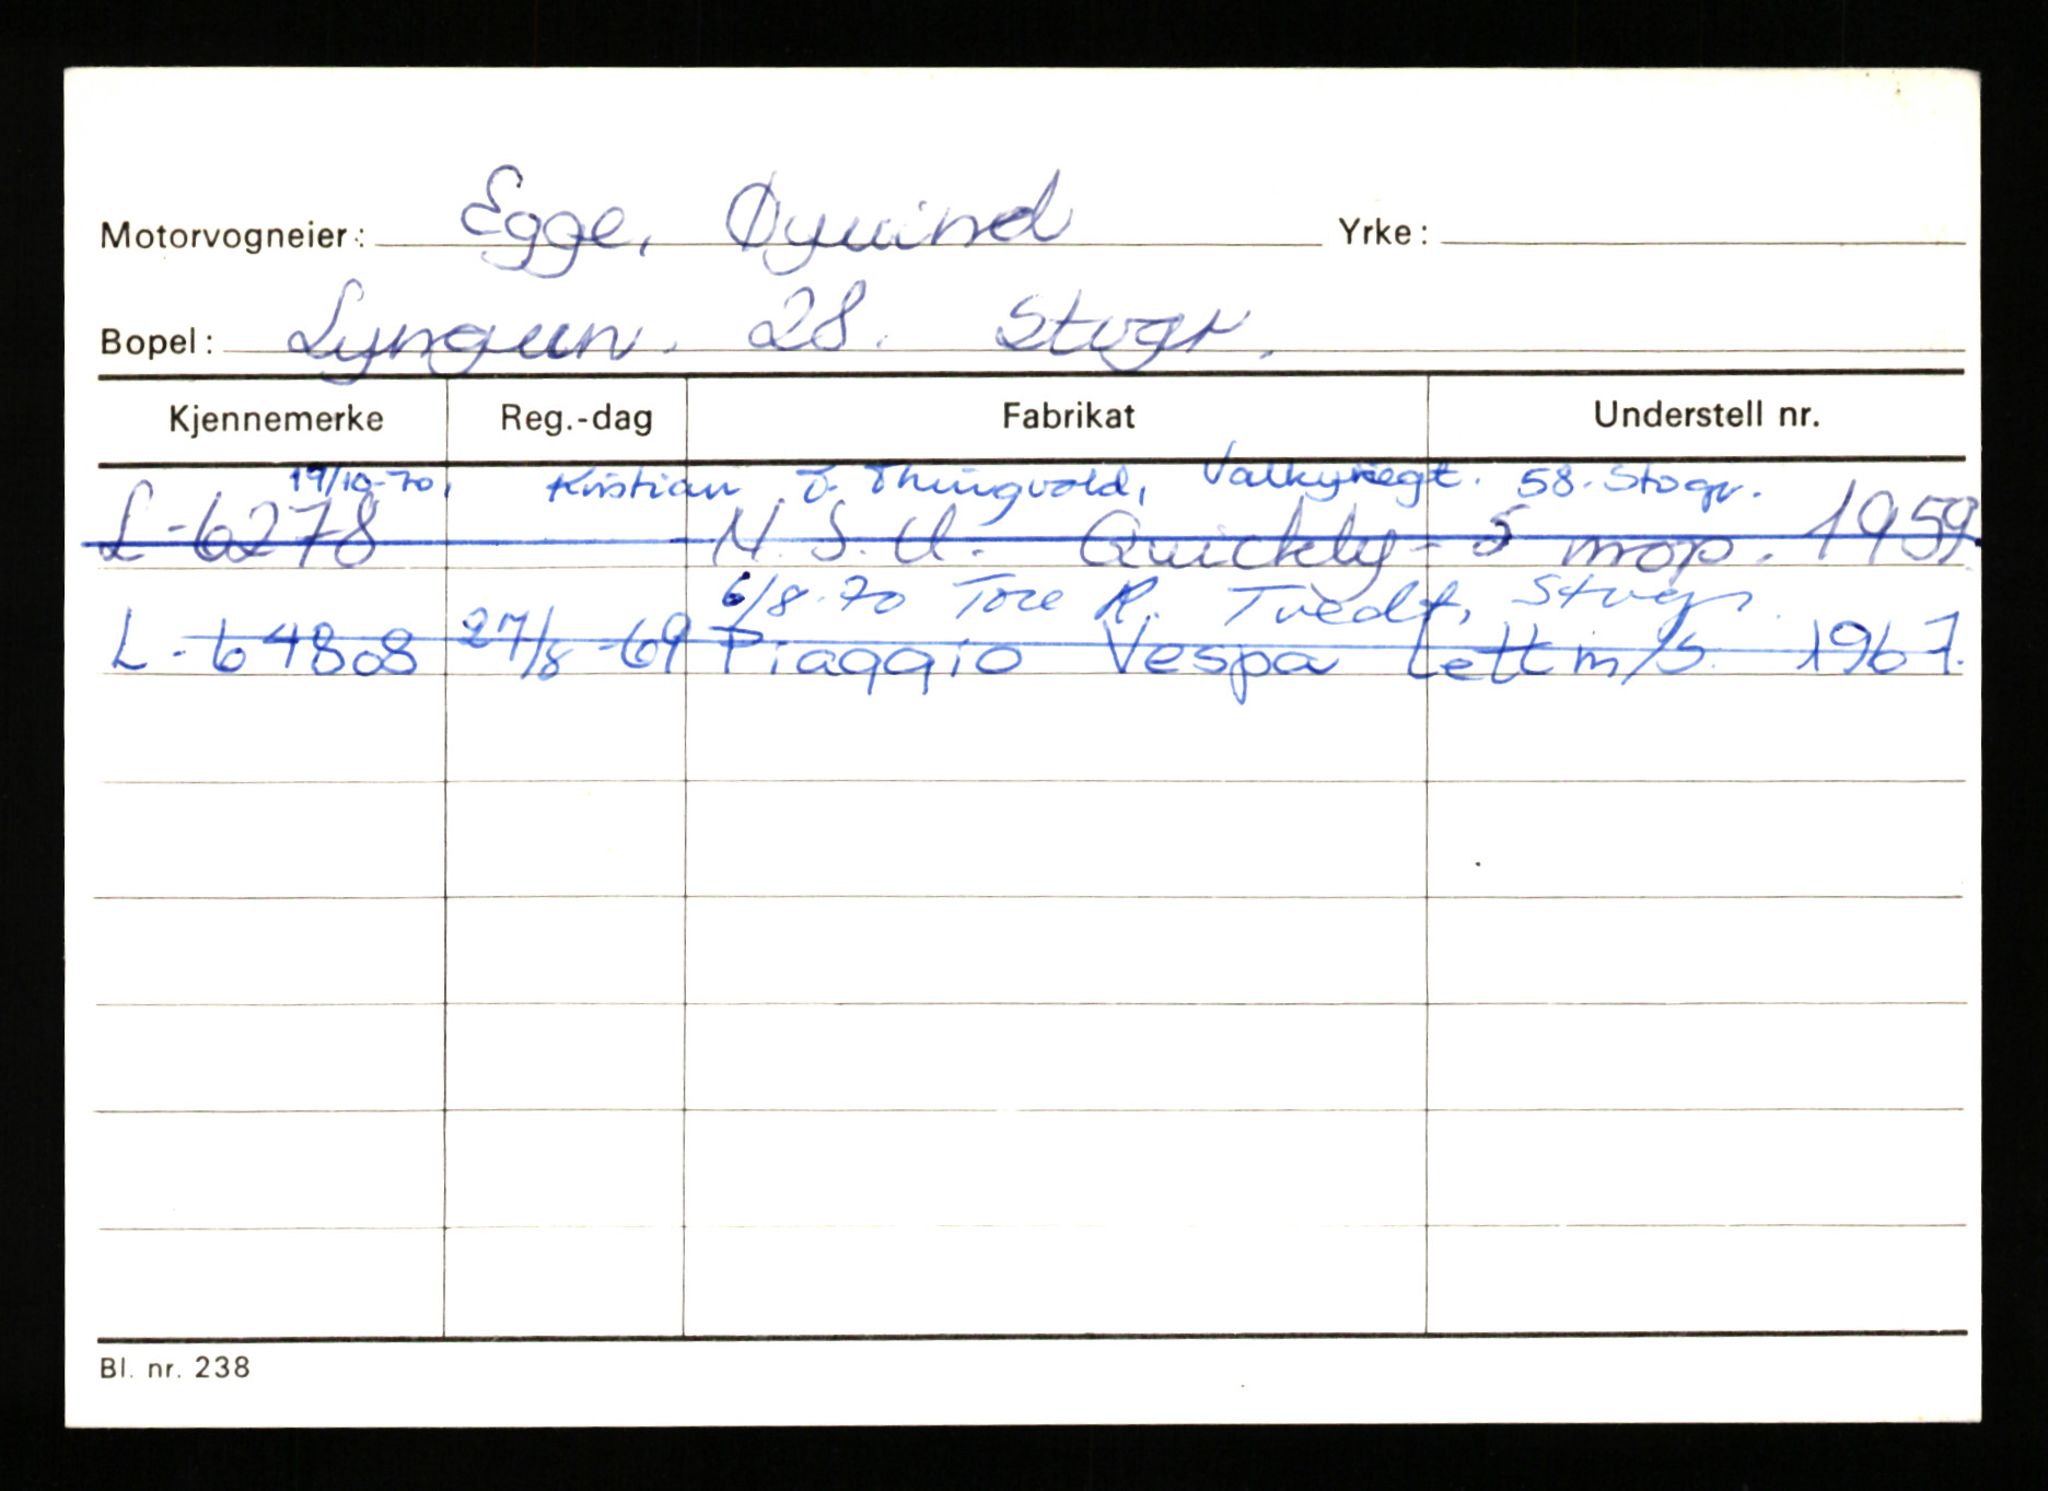 Motorvogneier: Egge, Øyvind Yrke:
Bopel: Lyngvn. 28. Stvgr.
Kjennemerke Reg.-dag Fabrikat Understell nr.
19/10-70, Kristian J. Thingvold, Valkyriegt. 58. Stvgr.
L-6278 N.S.U. Quickly-S mop. 1959.
6/8-70 Tore R. Tvedt, Stvgr.
L-64808 27/8-69 Piaggio Vespa Lett m/S. 1967.
Bl. nr. 238